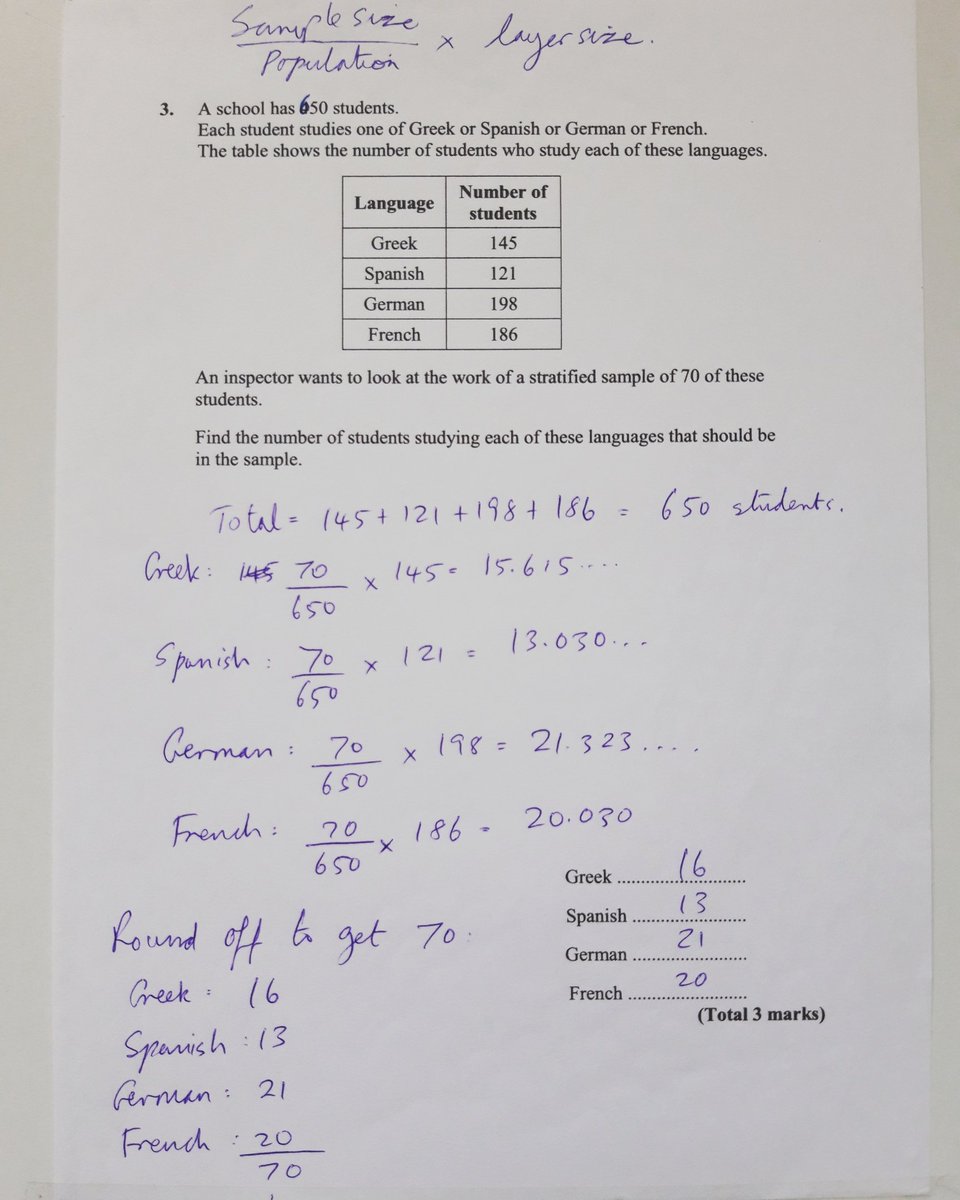 Sample size
Population
× layer size.
3. A school has 650 students.
Each student studies one of Greek or Spanish or German or French.
The table shows the number of students who study each of these languages.
Language Number of students
Greek 145
Spanish 121
German 198
French 186
An inspector wants to look at the work of a stratified sample of 70 of these
students.
Find the number of students studying each of these languages that should be
in the sample.
Total = 145 + 121 + 198 + 186 = 650 students.
Greek: 145 70 × 145 = 15.615....
650
Spanish : 70 × 121 = 13.030...
650
German : 70 × 198 = 21.323....
650
French : 70 × 186 = 20.030
650
Greek ................16...........
Spanish ................13...........
German ................21...........
French ................20...........
(Total 3 marks)
Round off to get 70.
Greek : 16
Spanish : 13
German : 21
French : 20
70